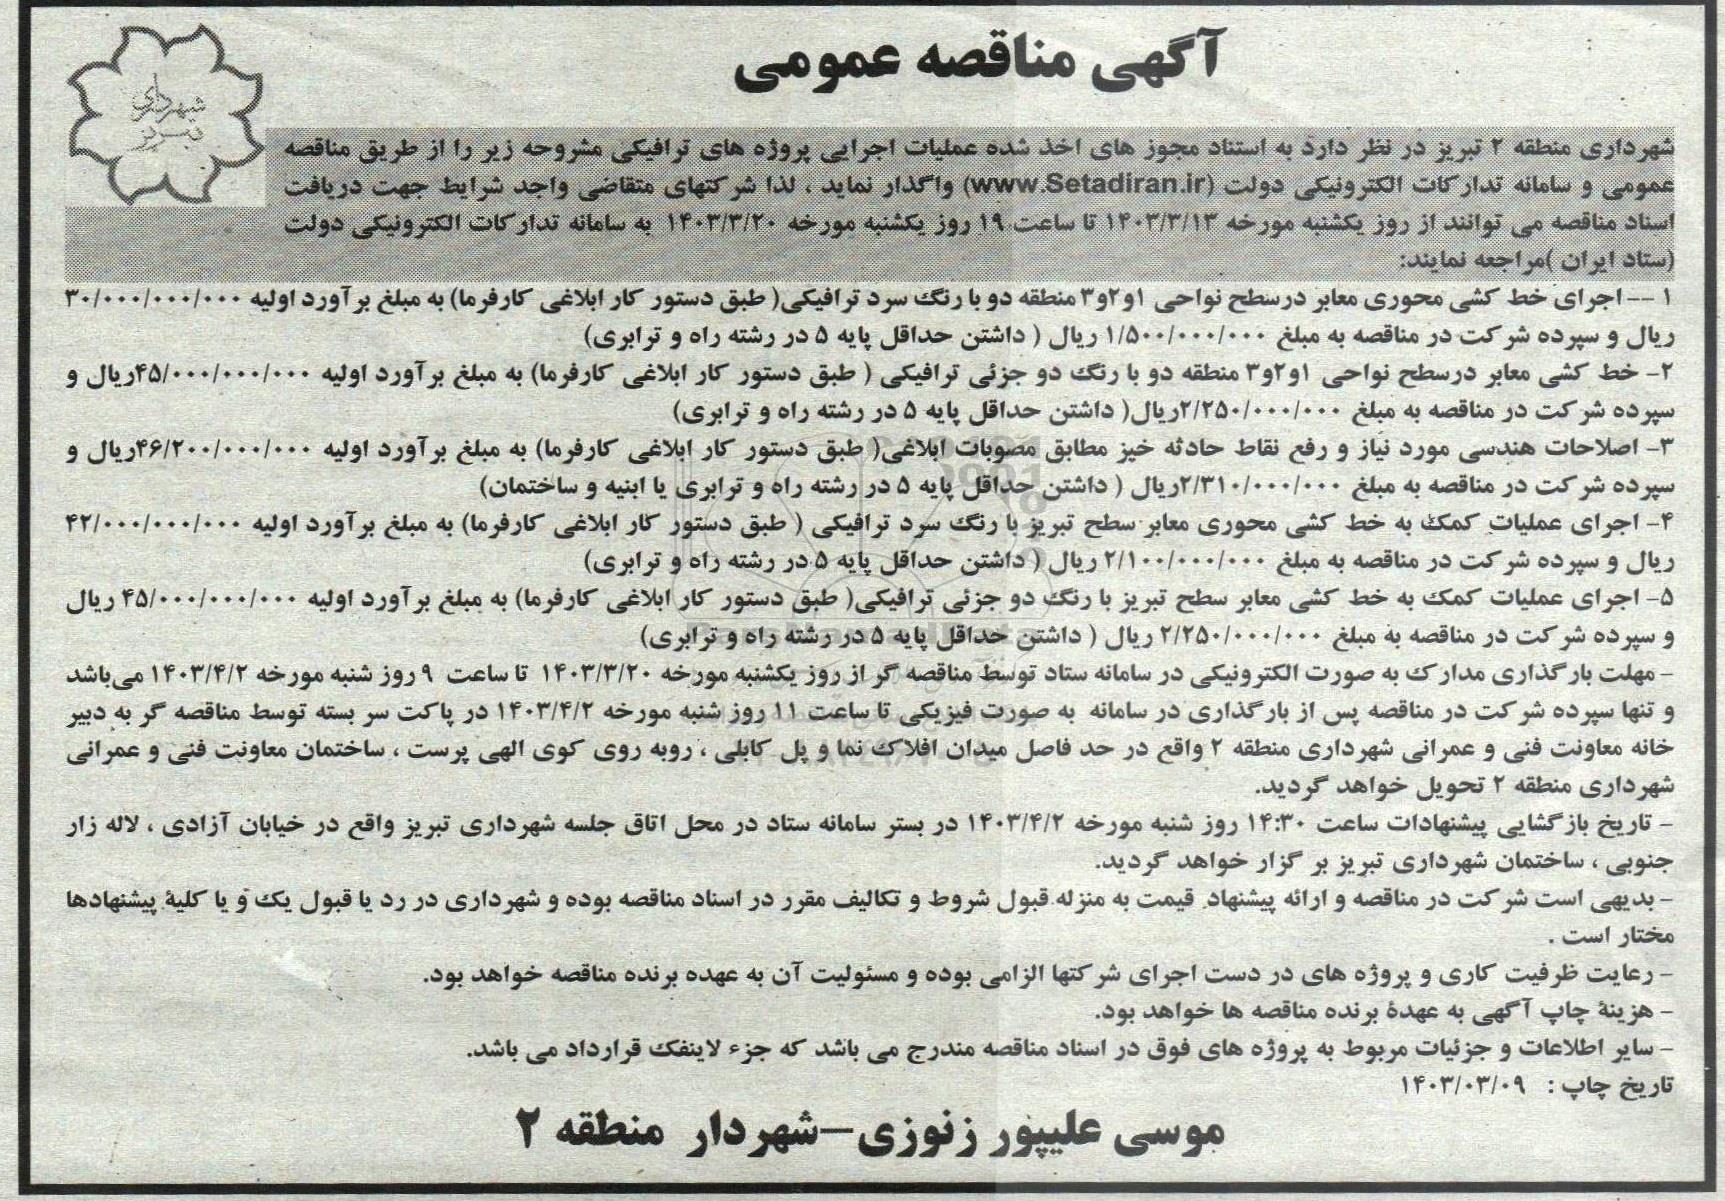 آگهی مناقصه عمومی
شهرداری تبریز
شهرداری منطقه ۲ تبریز در نظر دارد به استناد مجوز های اخذ شده عملیات اجرایی پروژه های ترافیکی مشروحه زیر را از طریق مناقصه
عمومی و سامانه تدارکات الکترونیکی دولت (www.Setadiran.ir) واگذار نماید ، لذا شرکتهای متقاضی واجد شرایط جهت دریافت
اسناد مناقصه می توانند از روز یکشنبه مورخه ۱۴۰۳/۳/۱۳ تا ساعت ۱۹ روز یکشنبه مورخه ۱۴۰۳/۳/۲۰ به سامانه تدارکات الکترونیکی دولت
(ستاد ایران )مراجعه نمایند:
۱ -- اجرای خط کشی محوری معابر درسطح نواحی ۱و۲و۳ منطقه دو با رنگ سرد ترافیکی( طبق دستور کار ابلاغی کارفرما) به مبلغ برآورد اولیه ۳۰/۰۰۰/۰۰۰/۰۰۰
ریال و سپرده شرکت در مناقصه به مبلغ ۱/۵۰۰/۰۰۰/۰۰۰ ریال ( داشتن حداقل پایه ۵ در رشته راه و ترابری)
۲- خط کشی معابر درسطح نواحی ۱و۲و۳ منطقه دو با رنگ دو جزئی ترافیکی ( طبق دستور کار ابلاغی کارفرما) به مبلغ برآورد اولیه ۴۵/۰۰۰/۰۰۰/۰۰۰ریال و
سپرده شرکت در مناقصه به مبلغ ۲/۲۵۰/۰۰۰/۰۰۰ریال( داشتن حداقل پایه ۵ در رشته راه و ترابری)
۳- اصلاحات هندسی مورد نیاز و رفع نقاط حادثه خیز مطابق مصوبات ابلاغی( طبق دستور کار ابلاغی کارفرما) به مبلغ برآورد اولیه ۴۶/۲۰۰/۰۰۰/۰۰۰ریال و
سپرده شرکت در مناقصه به مبلغ ۲/۳۱۰/۰۰۰/۰۰۰ریال ( داشتن حداقل پایه ۵ در رشته راه و ترابری یا ابنیه و ساختمان)
۴- اجرای عملیات کمک به خط کشی محوری معابر سطح تبریز با رنگ سرد ترافیکی ( طبق دستور کار ابلاغی کارفرما) به مبلغ برآورد اولیه ۴۲/۰۰۰/۰۰۰/۰۰۰
ریال و سپرده شرکت در مناقصه به مبلغ ۲/۱۰۰/۰۰۰/۰۰۰ ریال ( داشتن حداقل پایه ۵ در رشته راه و ترابری)
۵- اجرای عملیات کمک به خط کشی معابر سطح تبریز با رنگ دو جزئی ترافیکی( طبق دستور کار ابلاغی کارفرما) به مبلغ برآورد اولیه ۴۵/۰۰۰/۰۰۰/۰۰۰ ریال
و سپرده شرکت در مناقصه به مبلغ ۲/۲۵۰/۰۰۰/۰۰۰ ریال ( داشتن حداقل پایه ۵ در رشته راه و ترابری)
- مهلت بارگذاری مدارک به صورت الکترونیکی در سامانه ستاد توسط مناقصه گر از روز یکشنبه مورخه ۱۴۰۳/۳/۲۰ تا ساعت ۹ روز شنبه مورخه ۱۴۰۳/۴/۲ می‌باشد
و تنها سپرده شرکت در مناقصه پس از بارگذاری در سامانه به صورت فیزیکی تا ساعت ۱۱ روز شنبه مورخه ۱۴۰۳/۴/۲ در پاکت سر بسته توسط مناقصه گر به دبیر
خانه معاونت فنی و عمرانی شهرداری منطقه ۲ واقع در حد فاصل میدان افلاک نما و پل کابلی ، روبه روی کوی الهی پرست ، ساختمان معاونت فنی و عمرانی
شهرداری منطقه ۲ تحویل خواهد گردید.
- تاریخ بازگشایی پیشنهادات ساعت ۱۴:۳۰ روز شنبه مورخه ۱۴۰۳/۴/۲ در بستر سامانه ستاد در محل اتاق جلسه شهرداری تبریز واقع در خیابان آزادی ، لاله زار
جنوبی ، ساختمان شهرداری تبریز بر گزار خواهد گردید.
- بدیهی است شرکت در مناقصه و ارائه پیشنهاد قیمت به منزله قبول شروط و تکالیف مقرر در اسناد مناقصه بوده و شهرداری در رد یا قبول یک و یا کلیهٔ پیشنهادها
مختار است .
- رعایت ظرفیت کاری و پروژه های در دست اجرای شرکتها الزامی بوده و مسئولیت آن به عهده برنده مناقصه خواهد بود.
- هزینهٔ چاپ آگهی به عهدهٔ برنده مناقصه ها خواهد بود.
- سایر اطلاعات و جزئیات مربوط به پروژه های فوق در اسناد مناقصه مندرج می باشد که جزء لاینفک قرارداد می باشد.
تاریخ چاپ : ۱۴۰۳/۰۳/۰۹
موسی علیپور زنوزی-شهردار منطقه ۲